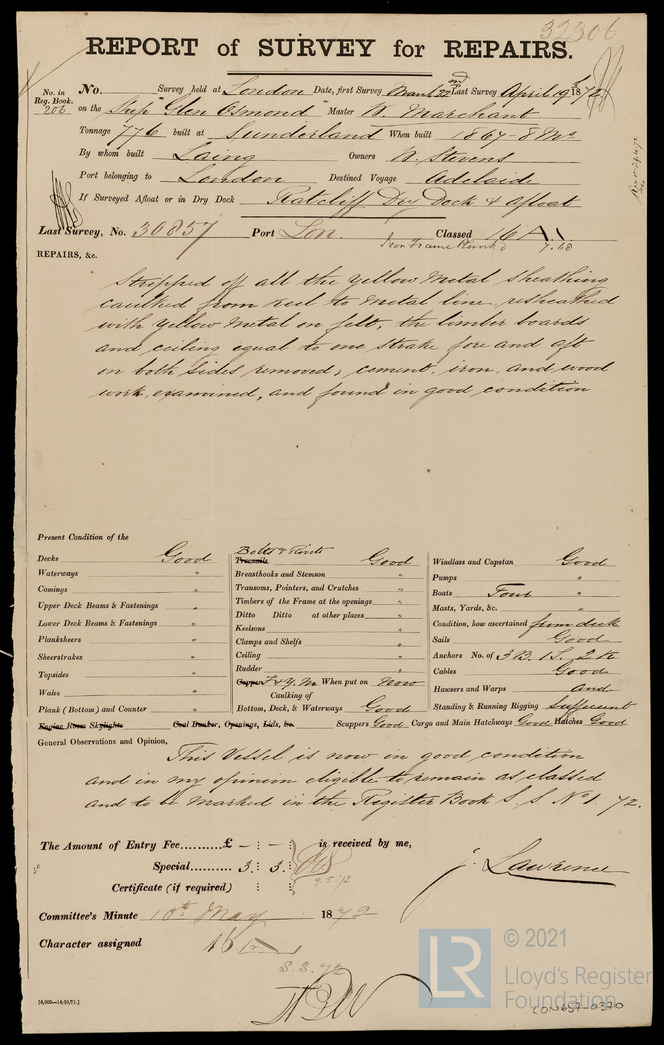 32306
REPORT of SURVEY for REPAIRS.
No. in Reg. Book. 206 No. Survey held at London Date, first Survey March 22nd Last Survey April 19th 1872
on the Ship "Glen Osmond" Master W. Marchant
Tonnage 776 built at Sunderland When built 1867-8 Mo
By whom built Laing Owners W. Stevens
Port belonging to London Destined Voyage Adelaide
If Surveyed Afloat or in Dry Dock Ratcliff Dry Dock & Afloat
Last Survey, No. 30857 Port Lon. Classed 16 A1
Iron Frame Plank'd 7.68
REPAIRS, &c.
Stripped off all the Yellow Metal Sheathing
caulked from keel to Metal line, resheathed
with Yellow Metal on felt, the limber boards
and ceiling equal to one strake fore and aft
on both Sides removed, cement, iron, and wood
work, examined, and found in good condition
Present Condition of the
Decks Good
Waterways "
Comings "
Upper Deck Beams & Fastenings "
Lower Deck Beams & Fastenings "
Planksheers "
Sheerstrakes "
Topsides "
Wales "
Plank (Bottom) and Counter "
Engine Room Skylights Coal Bunker, Openings, Lids, &c.
Bolts & Rivets
Treenails Good
Breasthooks and Stemson "
Transoms, Pointers, and Crutches "
Timbers of the Frame at the openings "
Ditto Ditto at other places "
Keelsons "
Clamps and Shelfs "
Ceiling "
Rudder "
Copper F & Y. M When put on Now
Caulking of
Bottom, Deck, & Waterways Good
Windlass and Capstan Good
Pumps "
Boats Four "
Masts, Yards, &c. "
Condition, how ascertained from deck
Sails Good
Anchors No. of 3 B. 1 S. 2 K
Cables Good
Hawsers and Warps and
Standing & Running Rigging sufficient
Scuppers Good Cargo and Main Hatchways Good Hatches Good
General Observations and Opinion,
This Vessel is now in good condition
and in my opinion eligible to remain as classed
and to be Marked in the Register Book S. S. No 1. 72.
The Amount of Entry Fee..........£ - : - : is received by me,
Special.......... 3 : 3 :
Certificate (if required) : :
J. Lawrence
Committee's Minute 10th May 1872
Character assigned 16 A
S.S. 72
[6,000—14/10/71.]
LR © 2021
Lloyd's Register
Foundation
LON657-0370